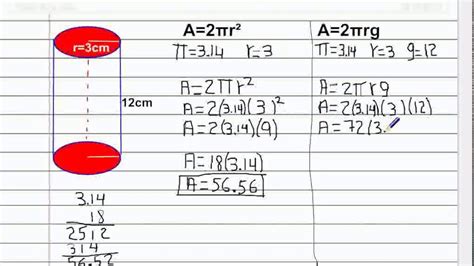 r=3cm
12cm
3.14
18
2512
314
56.52
A=2πr²
π=3.14 r=3
A=2πr²
A=2(3.14)(3)²
A=2(3.14)(9)
A=18(3.14)
A=56.56
A=2πrg
π=3.14 r=3 g=12
A=2πrg
A=2(3.14)(3)(12)
A=72(3.